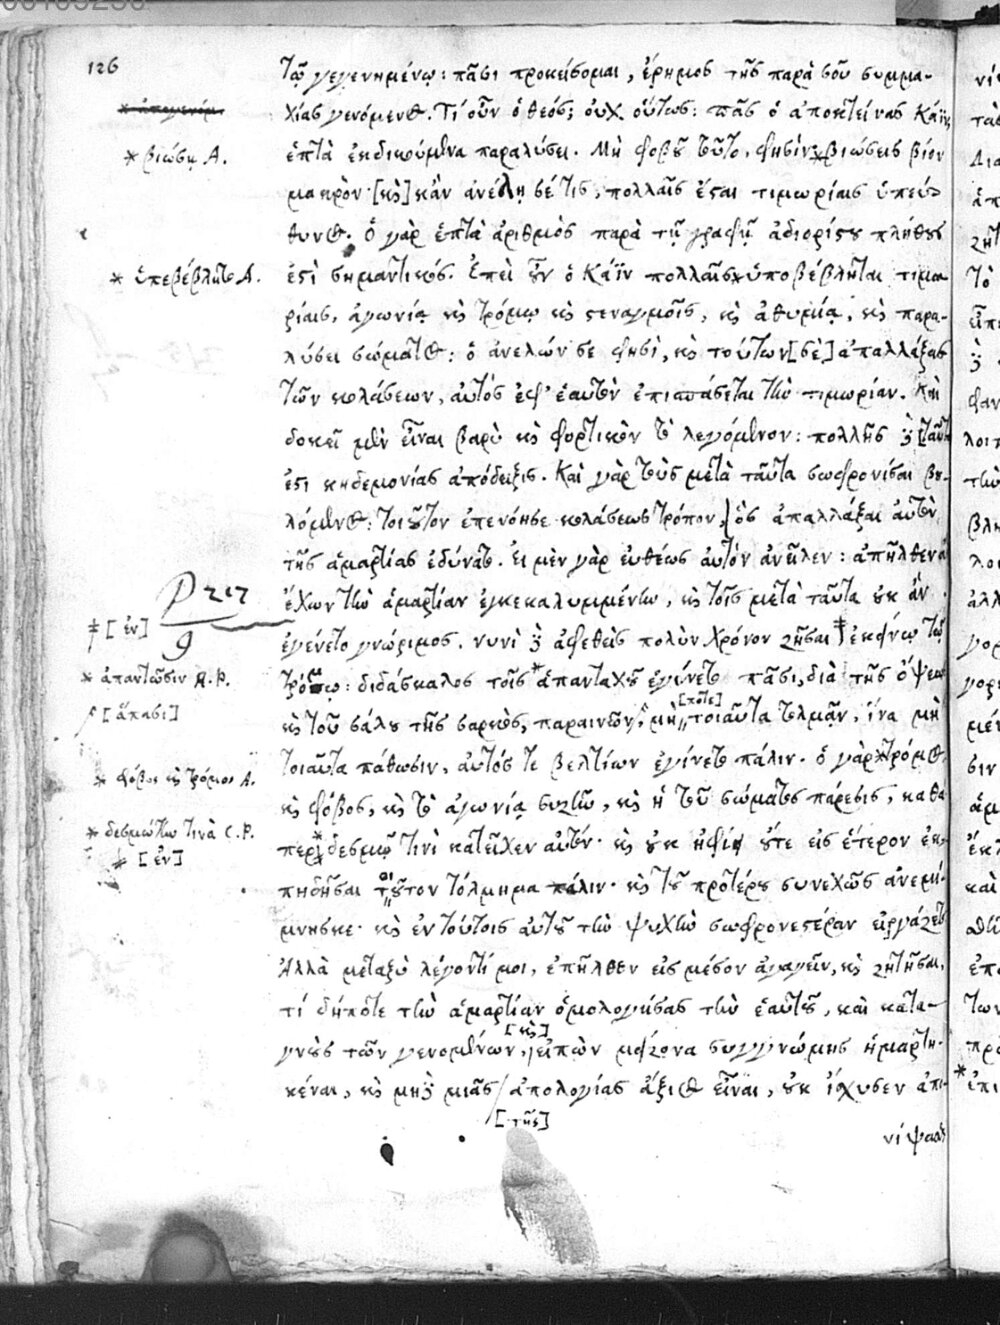 126
τῷ γεγενημένῳ: πᾶσι προκείσομαι, ἔρημος τῆς παρὰ σοῦ συμμα-
χίας γενόμενος. Τί οὖν ὁ θεός; οὐχ οὕτως: πᾶς ὁ ἀποκτείνας Κάϊν,
* βιώσῃ Α.
ἑπτὰ ἐκδικούμενα παραλύσει. Μὴ φοβοῦ τοῦτο, φησίν * βιώσεις βίον
μακρὸν· [κὶ] κἂν ἀνέλῃ σέ τις, πολλαῖς ἔσται τιμωρίαις ὑπεύ-
θυνος. ὁ γὰρ ἑπτὰ ἀριθμὸς παρὰ τῇ γραφῇ ἀδιορίστου πλήθους
* ὑπεβέβλητο Α.
ἐστὶ σημαντικός. Ἐπεὶ οὖν ὁ Κάϊν πολλαῖς * ὑποβέβληται τιμω-
ρίαις, ἀγωνίᾳ καὶ τρόμῳ καὶ στεναγμοῖς, καὶ ἀθυμίᾳ, καὶ παρα-
λύσει σώματος: ὁ ἀνελών σε φησὶ, καὶ τούτων [σὲ] ἀπαλλάξας
τῶν κολάσεων, αὐτὸς ἐφ' ἑαυτὸν ἐπισπάσεται τὴν τιμωρίαν. Καὶ
δοκεῖ μὲν εἶναι βαρὺ καὶ φορτικὸν τὸ λεγόμενον: πολλῆς δὲ [ταῦτα
ἐστι κηδεμονίας ἀπόδειξις. Καὶ γὰρ τοὺς μετὰ ταῦτα σωφρονίσαι βου-
λόμενος: τοιοῦτον ἐπενόησε κολάσεως τρόπον, ὃς ἀπαλλάξαι αὐτὸν
τῆς ἁμαρτίας ἐδύνατο. Εἰ μὲν γὰρ εὐθέως αὐτόν ἀνεῖλεν: ἀπῆλθεν ἂν
P 217
9
ἔχων τὴν ἁμαρτίαν ἐγκεκαλυμμένην, καὶ τοῖς μετὰ ταῦτα οὐκ ἂν
‡ [ἐν]
ἐγένετο γνώριμος. νυνὶ δὲ ἀφεθεὶς πολὺν χρόνον ζῆσαι ‡ ἐκείνῳ τῷ
* ἁπαντῶσιν Α.Ρ.
τρόμῳ: διδάσκαλος τοῖς * ἁπανταχοῦ ἐγίνετο πᾶσι, διὰ τῆς ὄψεως
[ἅπασι]
[ποτε]
καὶ τοῦ σάλου τῆς σαρκὸς, παραινῶν, μὴ τοιαῦτα τολμᾷν, ἵνα μὴ
* φόβος καὶ τρόμος Α.
τοιαῦτα πάθωσιν, αὐτός τε βελτίων ἐγίνετο πάλιν. ὁ γὰρ * τρόμος
καὶ φόβος, καὶ τὸ ἀγωνίᾳ συζῆν, καὶ ἡ τοῦ σώματος πάρεσις, καθά
* δεσμώτην τινὰ C.P.
‡ [ἐν]
περ * δεσμῷ τινὶ κατεῖχεν αὐτόν· καὶ οὐκ ἠφίει οὔτε εἰς ἕτερον ἐκ-
πηδῆσαι τοιοῦτον τόλμημα πάλιν· καὶ τοῦ προτέρου συνεχῶς ἀνεμί-
μνησκε· καὶ ἐν τούτοις αὐτοῦ τὴν ψυχὴν σωφρονεστέραν εἰργάζετο
Ἀλλὰ μεταξὺ λέγοντί μοι, ἐπῆλθεν εἰς μέσον ἀγαγεῖν, καὶ ζητῆσαι,
τί δήποτε τὴν ἁμαρτίαν ὁμολογήσας τὴν ἑαυτοῦ, καὶ κατα-
[καὶ]
γνοὺς τῶν γενομένων, εἰπὼν μείζονα συγγνώμης ἡμαρτη-
κέναι, καὶ μηδὲ μιᾶς ἀπολογίας ἄξιος εἶναι, οὐκ ἴσχυσεν ἀπο-
[τῆς]
νίψασθ